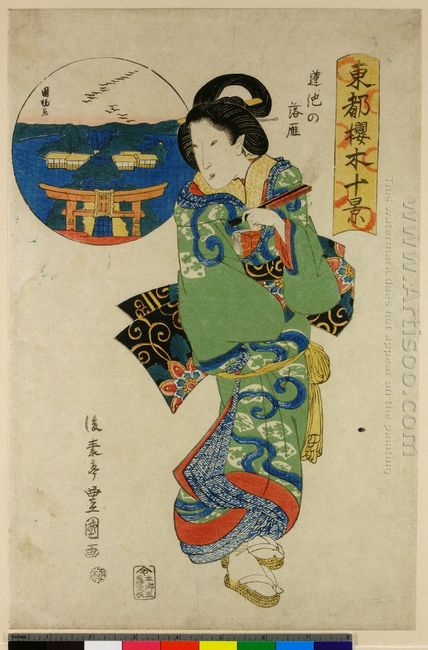 東都櫻木十景
蓮池の
落雁
國鶴画
後素亭豊國画
www.Artisoo.com
This watermark does not appear on the painting